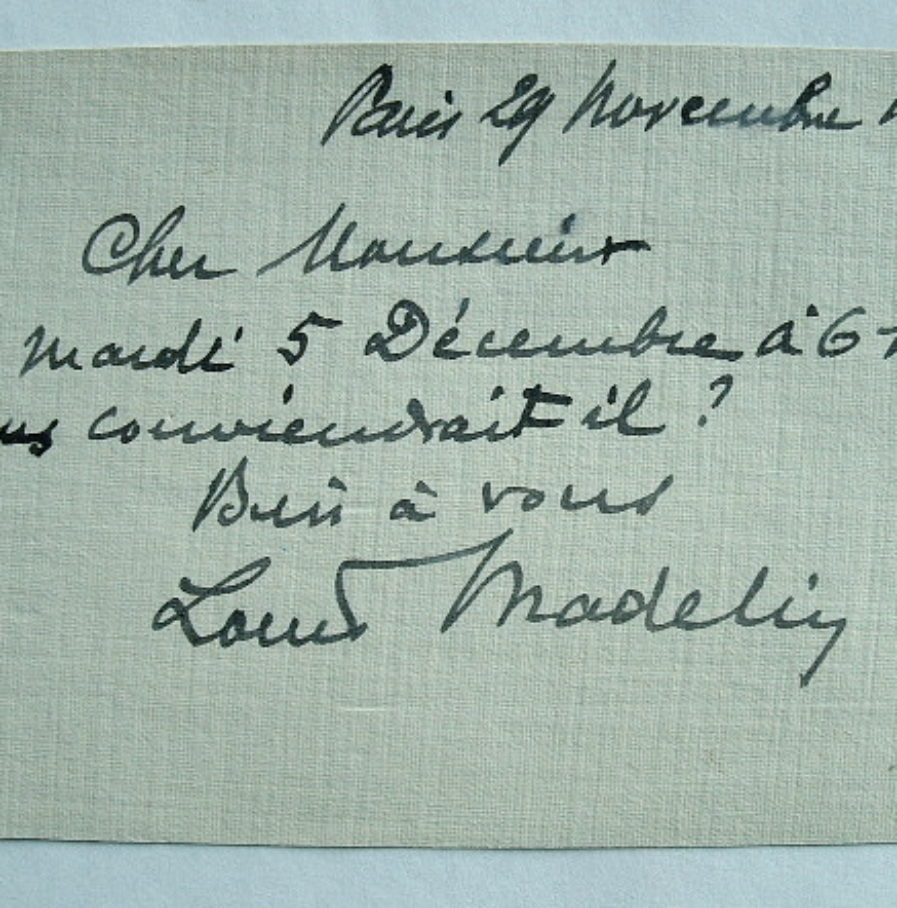 Paris 29 Novembre
Cher Monsieur
Mardi 5 Décembre à 6
conviendrait il ?
Bien à vous
Louis Madelin